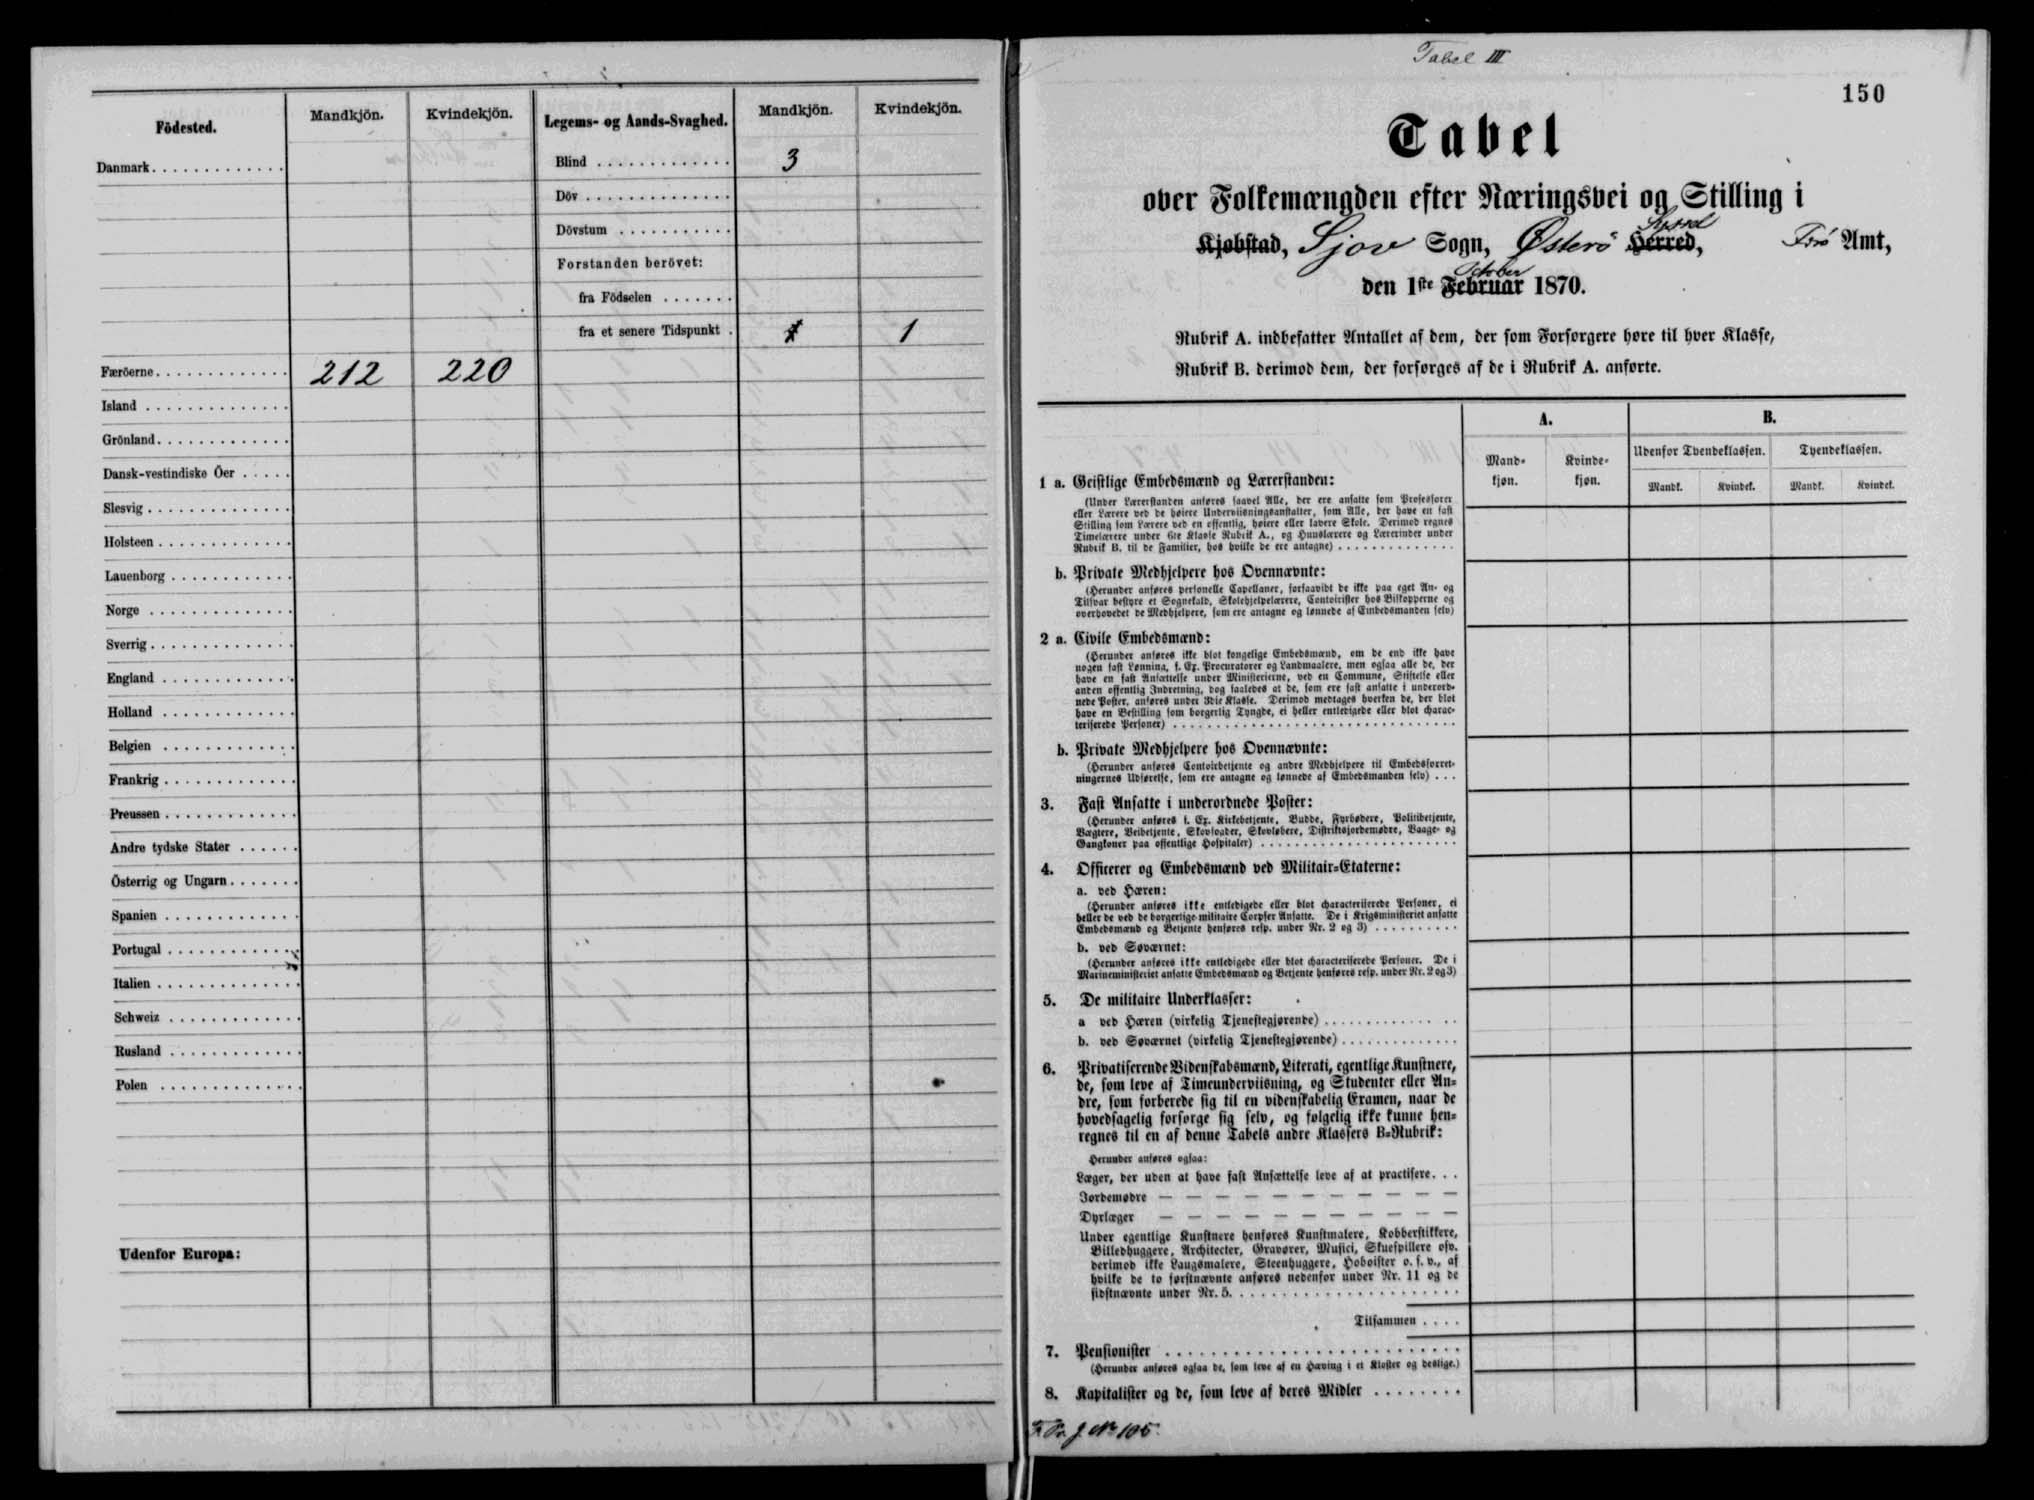 Födested.
Mandkjön.
Kvindekjön.
Danmark
Færöerne 212 220
Island
Grönland
Dansk-vestindiske Öer
Slesvig
Holsteen
Lauenborg
Norge
Sverrig
England
Holland
Belgien
Frankrig
Preussen
Andre tydske Stater
Österrig og Ungarn
Spanien
Portugal
Italien
Schweiz
Rusland
Polen
Udenfor Europa:
Legems- og Aands-Svaghed.
Mandkjön.
Kvindekjön.
Blind 3
Döv
Dövstum
Forstanden berövet:
fra Födselen
fra et senere Tidspunkt 1
Tabel III
150
Tabel
over Folkemængden efter Næringsvei og Stilling i
Syssel
Kjøbstad, Sjov Sogn, Österö Herred, Færö Amt,
October
den 1ste Februar 1870.
Rubrik A. indbefatter Antallet af dem, der som Forsørgere høre til hver Klasse,
Rubrik B. derimod dem, der forsørges af de i Rubrik A. anførte.
A.
B.
Mand-
kjøn.
Kvinde-
kjøn.
Udenfor Tyendeklassen.
Tyendeklassen.
Mandk.
Kvindek.
Mandk.
Kvindek.
1 a. Geistlige Embedsmænd og Lærerstanden:
(Under Lærerstanden anføres saavel Alle, der ere ansatte som Professorer
eller Lærere ved de høiere Underviisningsanstalter, som Alle, der have en fast
Stilling som Lærere ved en offentlig, høiere eller lavere Skole. Derimod regnes
Timelærere under 6te Klasse Rubrik A., og Huuslærere og Lærerinder under
Rubrik B. til de Familier, hos hvilke de ere antagne)
b. Private Medhjelpere hos Ovennævnte:
(Herunder anføres personelle Capellaner, forsaavidt de ikke paa eget An- og
Tilsvar bestyre et Sognekald, Skolehjelpelærere, Contoirister hos Biskopperne og
overhovedet de Medhjelpere, som ere antagne og lønnede af Embedsmanden selv)
2 a. Civile Embedsmænd:
(Herunder anføres ikke blot kongelige Embedsmænd, om de end ikke have
nogen fast Lønning, f. Ex. Procuratorer og Landmaalere, men ogsaa alle de, der
have en fast Ansættelse under Ministerierne, ved en Commune, Stiftelse eller
anden offentlig Indretning, dog saaledes at de, som ere fast ansatte i underord-
nede Poster, anføres under 3die Klasse. Derimod medtages hverken de, der blot
have en Bestilling som borgerlig Tyngde, ei heller entledigede eller blot charac-
teriserede Personer)
b. Private Medhjelpere hos Ovennævnte:
(Herunder anføres Contoirbetjente og andre Medhjelpere til Embedsforret-
ningernes Udførelse, som ere antagne og lønnede af Embedsmanden selv)
3. Fast Ansatte i underordnede Poster:
(Herunder anføres f. Ex. Kirkebetjente, Budde, Fyrbødere, Politibetjente,
Vægtere, Veibetjente, Skovfogder, Skovløbere, Distriktsjordemødre, Vaage- og
Gangkoner paa offentlige Hospitaler)
4. Officerer og Embedsmænd ved Militair-Etaterne:
a. ved Hæren:
(Herunder anføres ikke entledigede eller blot characteriserede Personer, ei
heller de ved de borgerlige militaire Corpser Ansatte. De i Krigsministeriet ansatte
Embedsmænd og Betjente henføres resp. under Nr. 2 og 3)
b. ved Søværnet:
(Herunder anføres ikke entledigede eller blot characteriserede Personer. De i
Marineministeriet ansatte Embedsmænd og Betjente henføres resp. under Nr. 2 og 3)
5. De militaire Underklasser:
a ved Hæren (virkelig Tjenestegjørende)
b. ved Søværnet (virkelig Tjenestegjørende)
6. Privatiserende Videnskabsmænd, Literati, egentlige Kunstnere,
de, som leve af Timeunderviisning, og Studenter eller An-
dre, som forberede sig til en videnskabelig Examen, naar de
hovedsagelig forsørge sig selv, og følgelig ikke kunne hen-
regnes til en af denne Tabels andre Klassers B-Rubrik:
Herunder anføres ogsaa:
Læger, der uden at have fast Ansættelse leve af at practisere
Jordemødre — — — — — — — — — — —
Dyrlæger — — — — — — — — — — —
Under egentlige Kunstnere henføres Kunstmalere, Kobberstikkere,
Billedhuggere, Architecter, Gravører, Musici, Skuespillere osv.
derimod ikke Laugsmalere, Steenhuggere, Hoboister o. s. v., af
hvilke de to førstnævnte anføres nedenfor under Nr. 11 og de
sidstnævnte under Nr. 5.
Tilsammen
7. Pensionister
(Herunder anføres ogsaa de, som leve af en Hæving i et Kloster og deslige.)
8. Kapitalister og de, som leve af deres Midler
J. No 105.